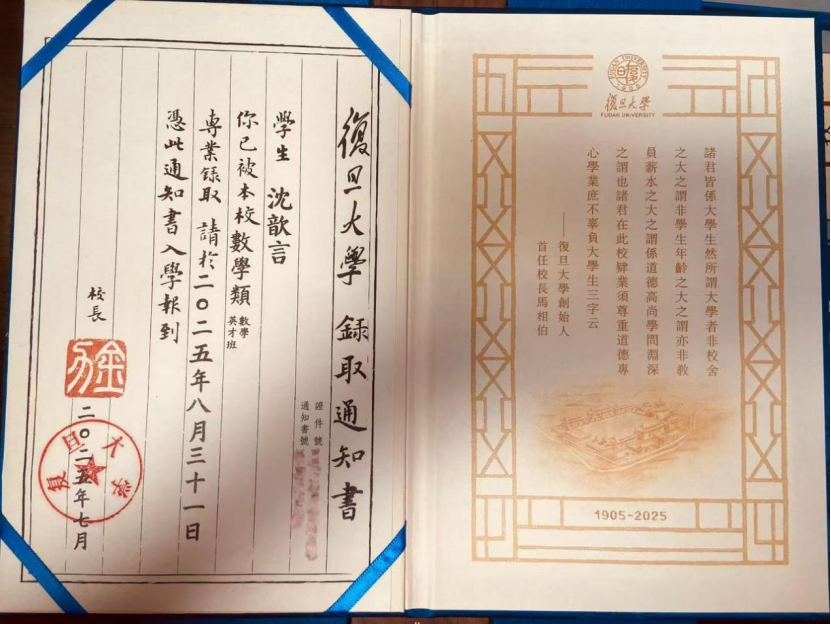 復旦大學 錄取通知書
證件號
通知書號
學生 沈歆言
你已被本校數學類 數學英才班
專業錄取 請於二〇二五年八月三十一日
憑此通知書入學報到
校長
金力
二〇二五年七月
復旦大學
FUDAN UNIVERSITY
復旦大學
FUDAN UNIVERSITY
諸君皆係大學生然所謂大學者非校舍
之大之謂非學生年齡之大之謂亦非教
員薪水之大之謂係道德高尚學問淵深
之謂也諸君在此校肄業須尊重道德專
心學業庶不辜負大學生三字云
——復旦大學創始人
首任校長馬相伯
1905-2025